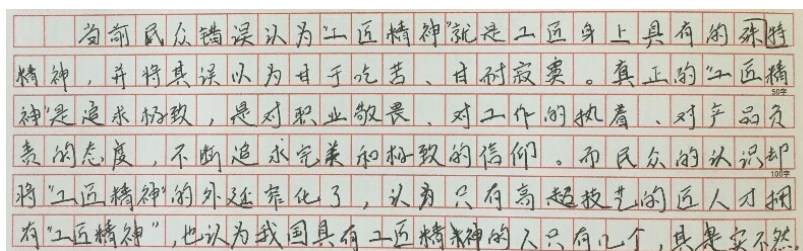 当前民众错误认为“工匠精神”就是工匠身上具有的殊特
精神，并将其误以为甘于吃苦、甘耐寂寞。真正的“工匠精
50字
神”是追求极致，是对职业敬畏、对工作的执着、对产品负
责的态度，不断追求完美和极致的信仰。而民众的认识却
100字
将“工匠精神”的外延窄化了，认为只有高超技艺的匠人才拥
有“工匠精神”，也认为我国具有工匠精神的人只有几个，其实不然